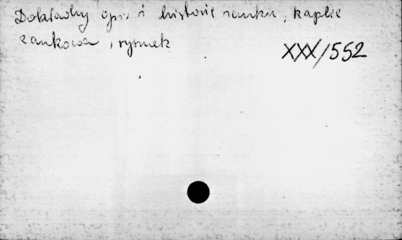 Dokładny opis i historie zamku, kaplic
zamkowa, rysunek
XXX/552